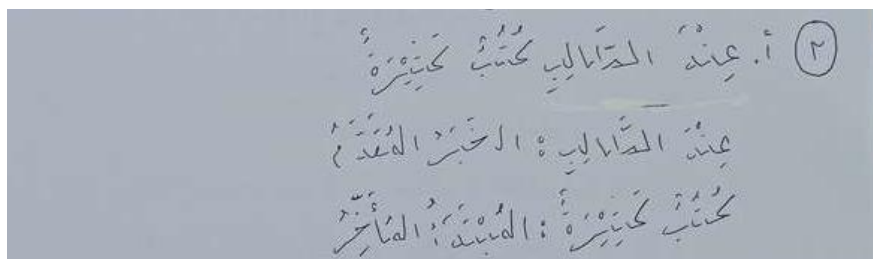 ٢ أ. عِنْدَ الطَّالِبِ كُتُبٌ كَثِيْرَةٌ
عِنْدَ الطَّالِبِ : الخَبَرُ المُقَدَّمُ
كُتُبٌ كَثِيْرَةٌ : المُبْتَدَأُ المُأَخَّرُ